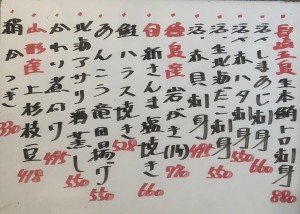 長崎五島 生本鮪トロ刺身 880
活〆しまあじ刺身 660
活〆赤ハタ刺身 550
活〆北海だこ刺身 495
活〆赤貝刺身
徳島産 岩がき(1ケ) 770
旬 新さんま塩焼き 660
鮭ハラス焼き 528
あんこう竜田揚げ 550
北海アサリ酒蒸し 550
かわり煮刈り 495
山形産 上杉枝豆 418
絹かつぎ 330